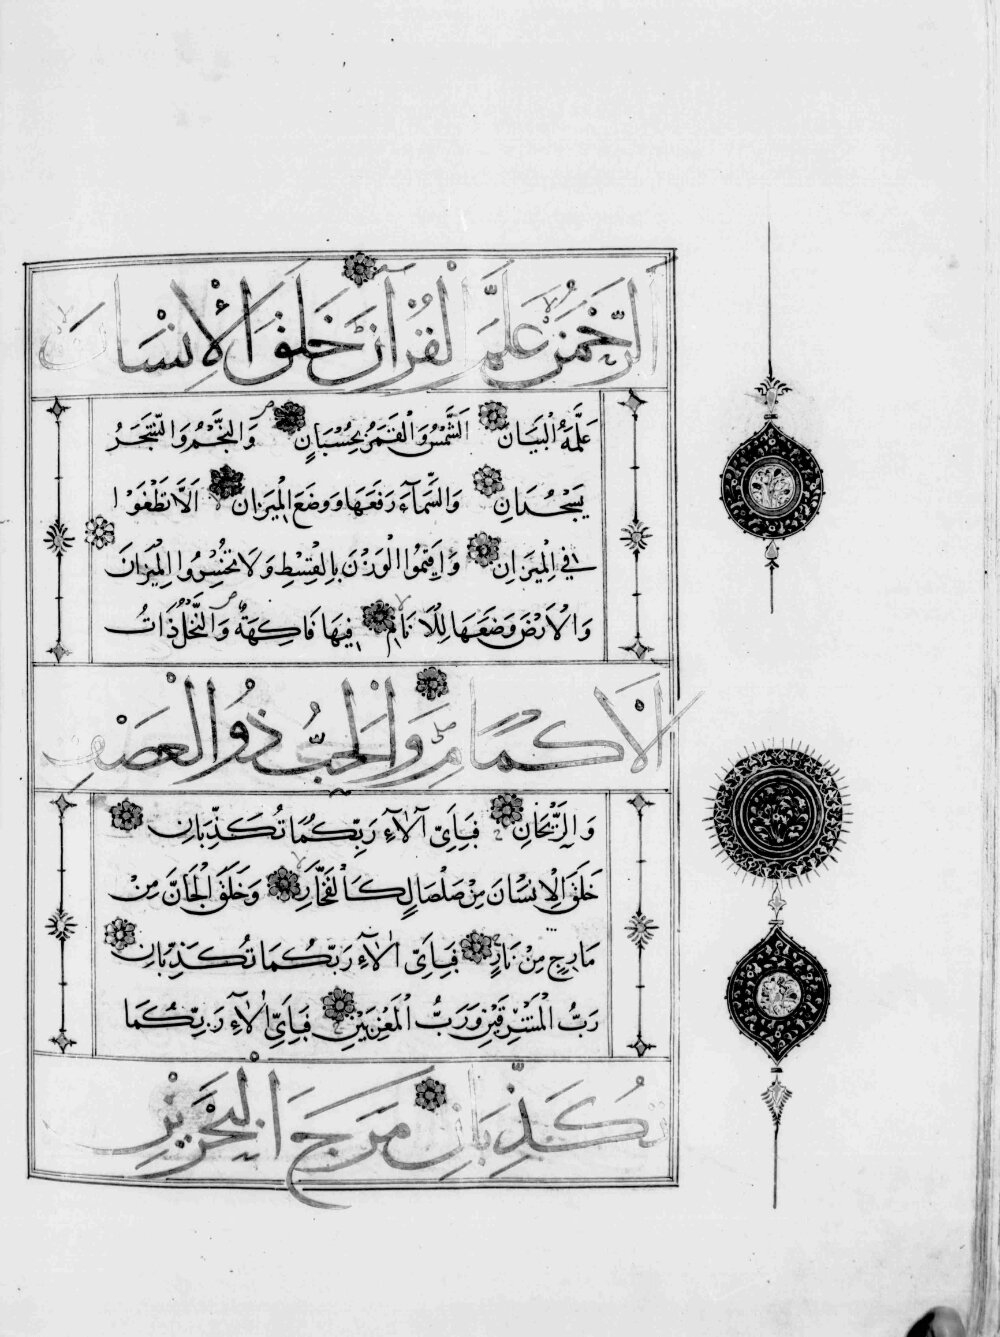 الرَّحْمَنُ عَلَّمَ الْقُرْآنَ خَلَقَ الْإِنْسَانَ
عَلَّمَهُ الْبَيَانَ الشَّمْسُ وَالْقَمَرُ بِحُسْبَانٍ وَالنَّجْمُ وَالشَّجَرُ
يَسْجُدَانِ وَالسَّمَاءَ رَفَعَهَا وَوَضَعَ الْمِيزَانَ اَلَّا تَطْغَوْا
فِي الْمِيزَانِ وَاَقِيمُوا الْوَزْنَ بِالْقِسْطِ وَلَا تُخْسِرُوا الْمِيزَانَ
وَالْاَرْضَ وَضَعَهَا لِلْاَنَامِ فِيهَا فَاكِهَةٌ وَالنَّخْلُ ذَاتُ
الْاَكْمَامِ وَالْحَبُّ ذُو الْعَصْفِ
وَالرَّيْحَانِ فَبِاَىِّ آلَاءِ رَبِّكُمَا تُكَذِّبَانِ
خَلَقَ الْاِنْسَانَ مِنْ صَلْصَالٍ كَالْفَخَّارِ وَخَلَقَ الْجَانَّ مِنْ
مَارِجٍ مِنْ نَارٍ فَبِاَىِّ الَاءِ رَبِّكُمَا تُكَذِّبَانِ
رَبُّ الْمَشْرِقَيْنِ وَرَبُّ الْمَغْرِبَيْنِ فَبِاَىِّ الَاءِ رَبِّكُمَا
تُكَذِّبَانِ مَرَجَ الْبَحْرَيْنِ